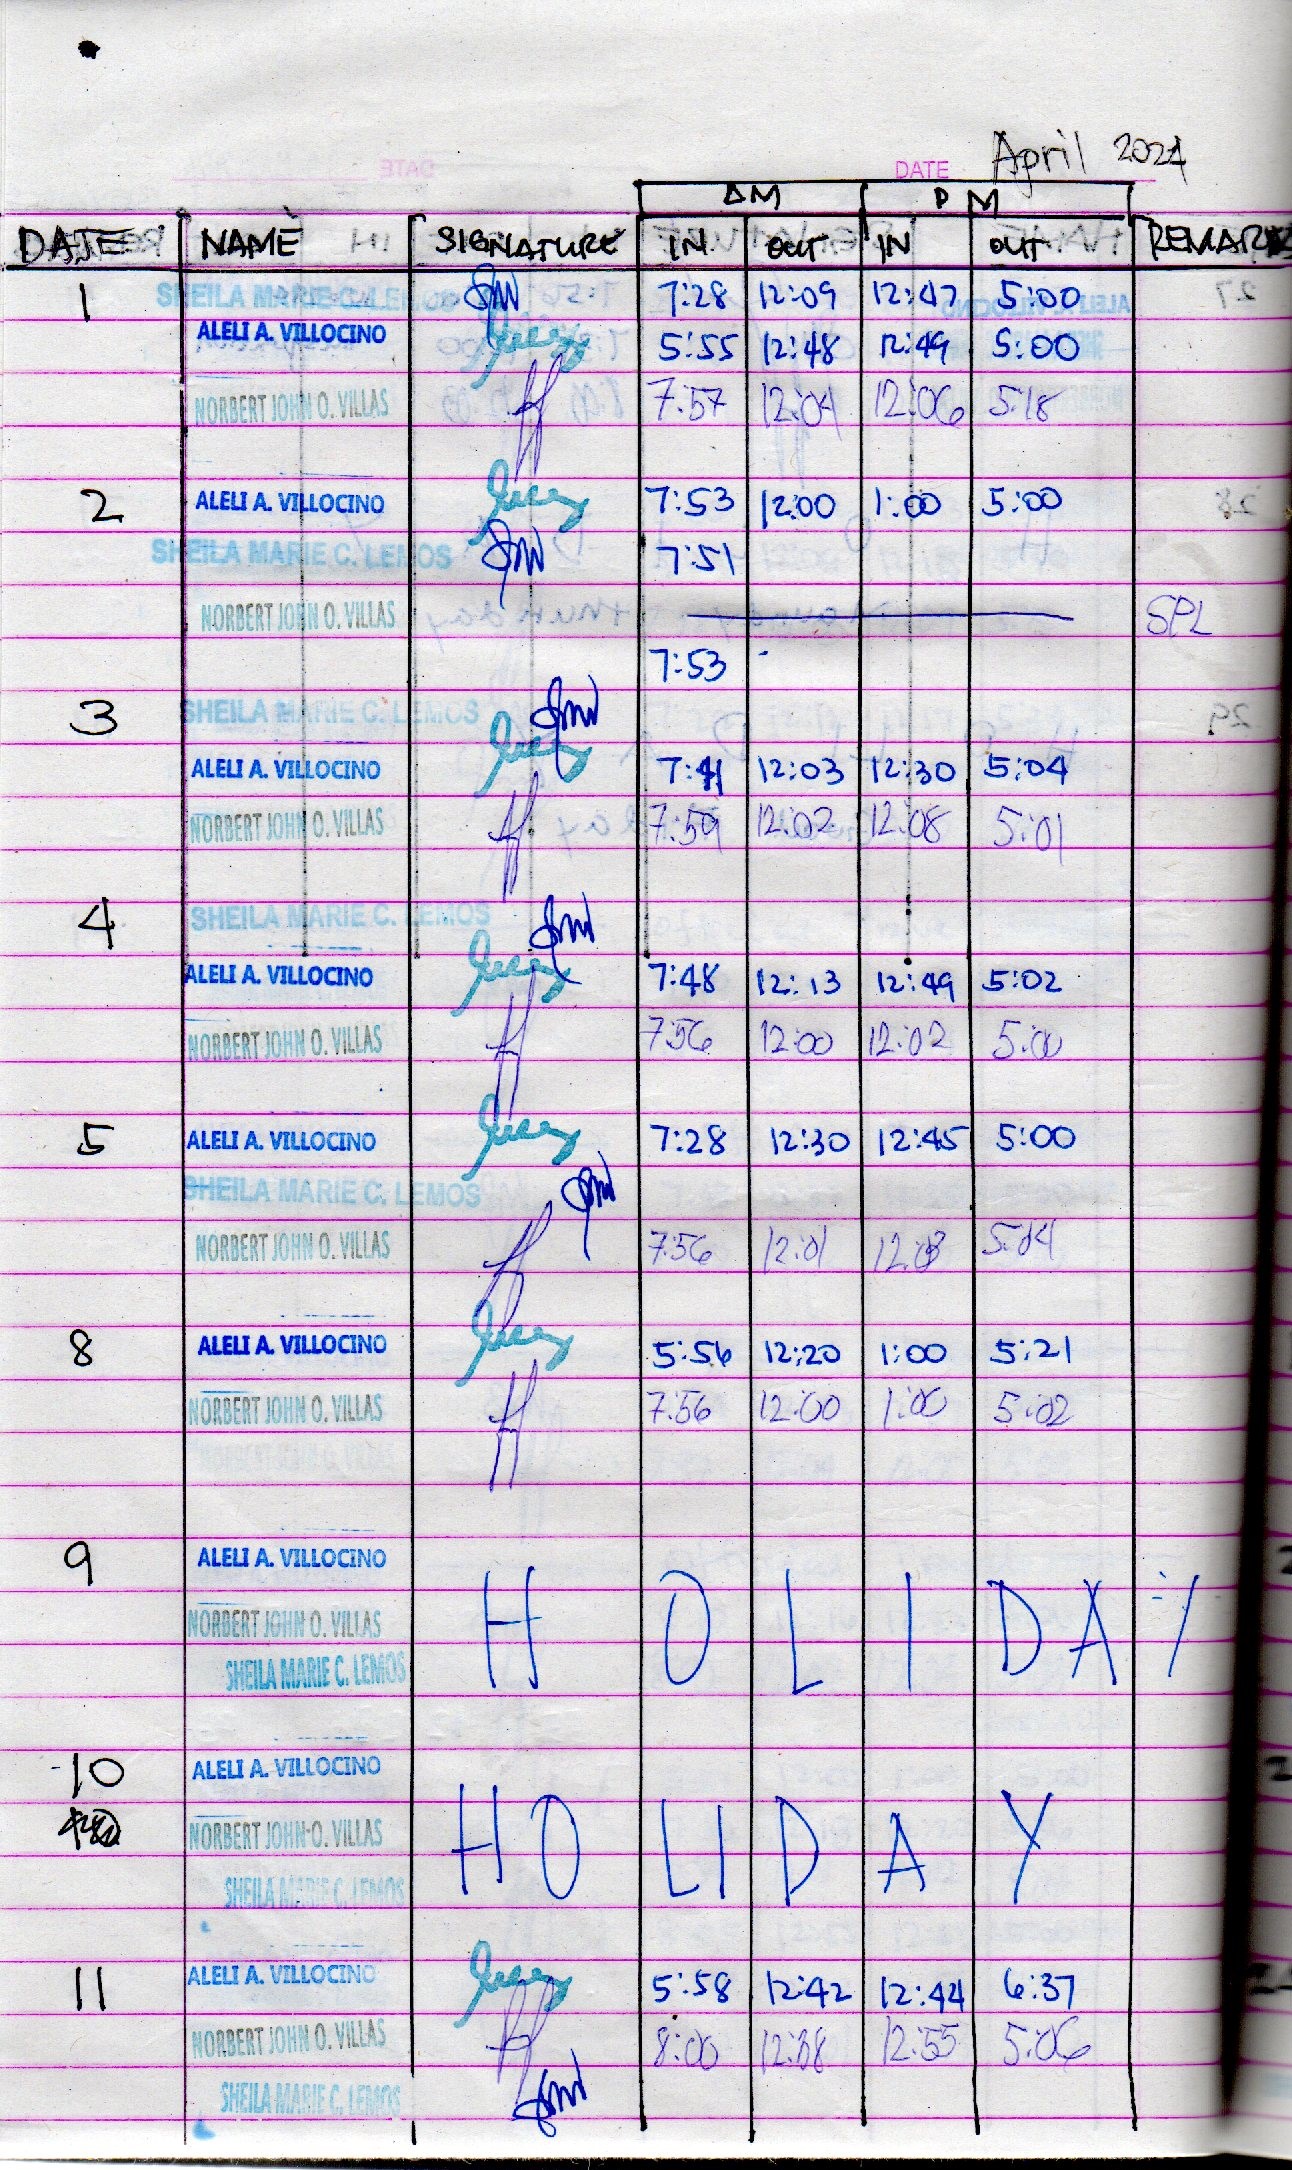 DATE April 2024
AM PM
DATE NAME SIGNATURE IN OUT IN OUT REMARKS
1 SHEILA MARIE C. LEMOS 7:28 12:09 12:47 5:00
ALELI A. VILLOCINO 5:55 12:48 12:49 5:00
NORBERT JOHN O. VILLAS 7:57 12:04 12:06 5:18
2 ALELI A. VILLOCINO 7:53 12:00 1:00 5:00
SHEILA MARIE C. LEMOS 7:51
NORBERT JOHN O. VILLAS SPL
7:53
3 SHEILA MARIE C. LEMOS
ALELI A. VILLOCINO 7:41 12:03 12:30 5:04
NORBERT JOHN O. VILLAS 7:59 12:02 12:08 5:01
4 SHEILA MARIE C. LEMOS
ALELI A. VILLOCINO 7:48 12:13 12:49 5:02
NORBERT JOHN O. VILLAS 7:56 12:00 12:02 5:00
5 ALELI A. VILLOCINO 7:28 12:30 12:45 5:00
SHEILA MARIE C. LEMOS
NORBERT JOHN O. VILLAS 7:56 12:01 5:04
8 ALELI A. VILLOCINO 5:56 12:20 1:00 5:21
NORBERT JOHN O. VILLAS 7:56 12:00 1:00 5:02
NORBERT JOHN O. VILLAS
9 ALELI A. VILLOCINO
HOLIDAY
NORBERT JOHN O. VILLAS
SHEILA MARIE C. LEMOS
10 ALELI A. VILLOCINO
HOLIDAY
NORBERT JOHN O. VILLAS
SHEILA MARIE C. LEMOS
11 ALELI A. VILLOCINO 5:58 12:42 12:44 6:37
NORBERT JOHN O. VILLAS 8:00 12:38 12:55 5:06
SHEILA MARIE C. LEMOS